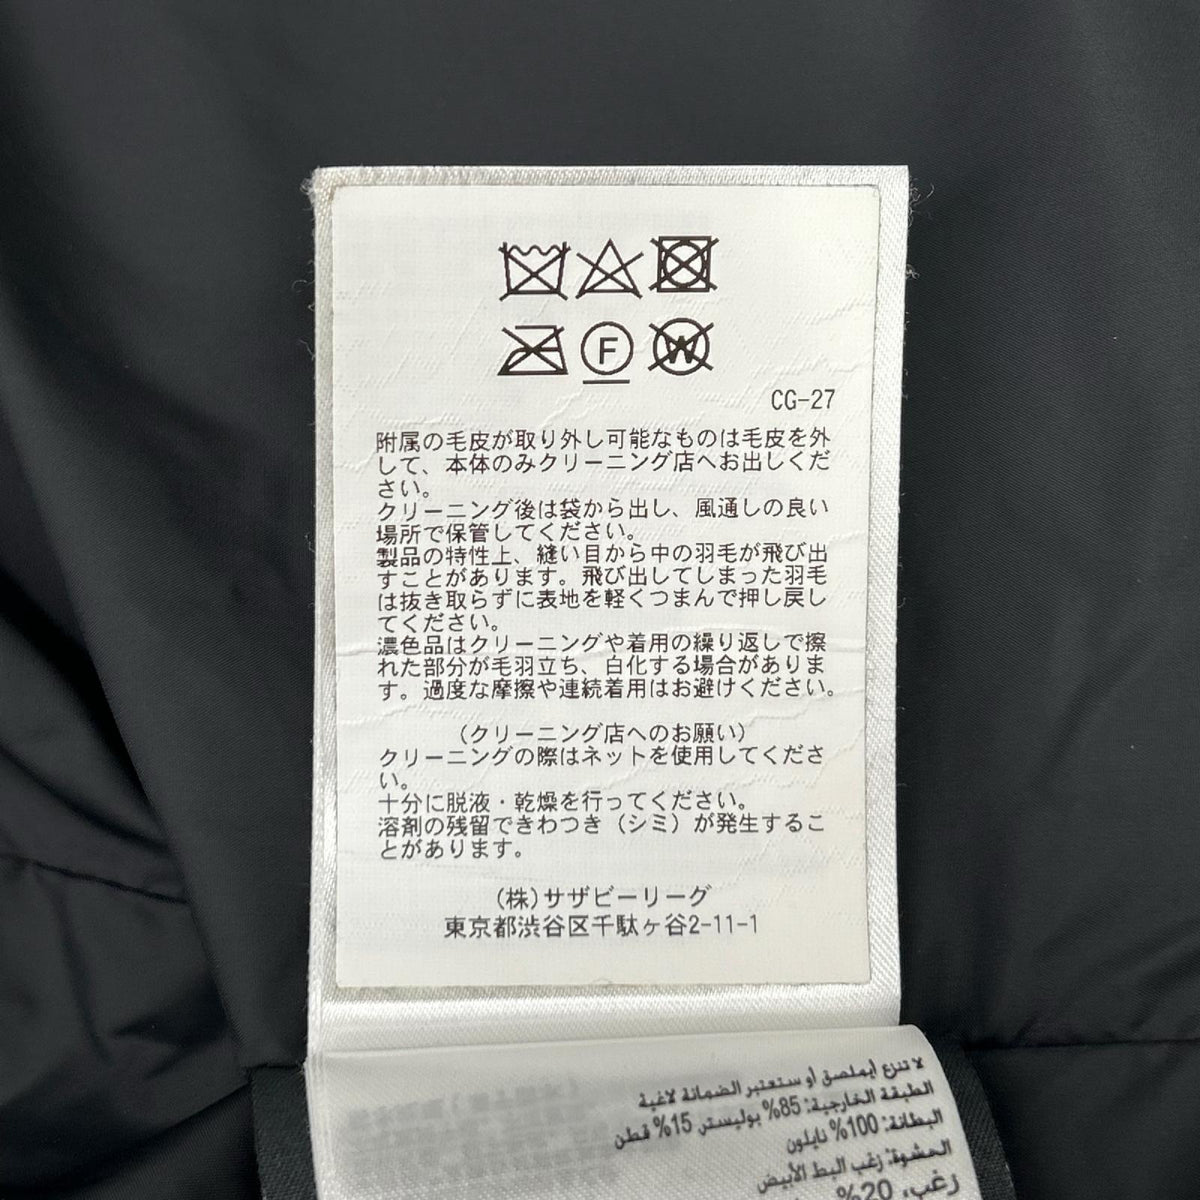 F
W
CG-27
附属の毛皮が取り外し可能なものは毛皮を外
して、本体のみクリーニング店へお出しくだ
さい。
クリーニング後は袋から出し、風通しの良い
場所で保管してください。
製品の特性上、縫い目から中の羽毛が飛び出
すことがあります。飛び出してしまった羽毛
は抜き取らずに表地を軽くつまんで押し戻し
てください。
濃色品はクリーニングや着用の繰り返しで擦
れた部分が毛羽立ち、白化する場合がありま
す。過度な摩擦や連続着用はお避けください。
(クリーニング店へのお願い)
クリーニングの際はネットを使用してくださ
い。
十分に脱液・乾燥を行ってください。
溶剤の残留できわつき(シミ)が発生するこ
とがあります。
(株)サザビーリーグ
東京都渋谷区千駄ヶ谷2-11-1
لا تنزع أيملصق أو ستعتبر الضمانة لاغية
الطبقة الخارجية: 85% بوليستر 15% قطن
البطانة: 100% نايلون
المشوة: زغب البط الأبيض
زغب، 20%